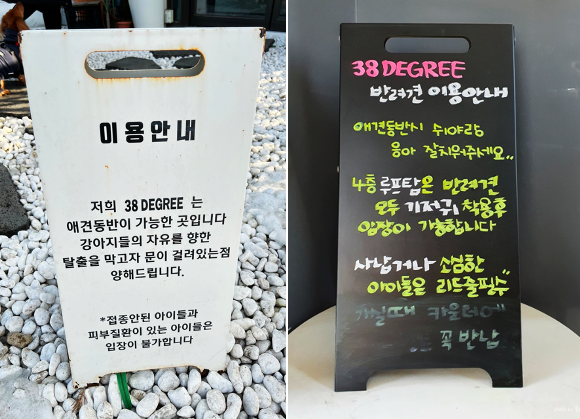 이용안내
저희 38 DEGREE 는
애견동반이 가능한 곳입니다
강아지들의 자유를 향한
탈출을 막고자 문이 걸려있는점
양해드립니다.
*접종안된 아이들과
피부질환이 있는 아이들은
입장이 불가합니다
38 DEGREE
반려견 이용안내
애견동반시 쉬야랑
응아 잘치워주세요..
4층 루프탑은 반려견
모두 기저귀 착용후
입장이 가능합니다
사납거나 소심한
아이들은 리드줄필수
가실때 카운터에
꼭 반납